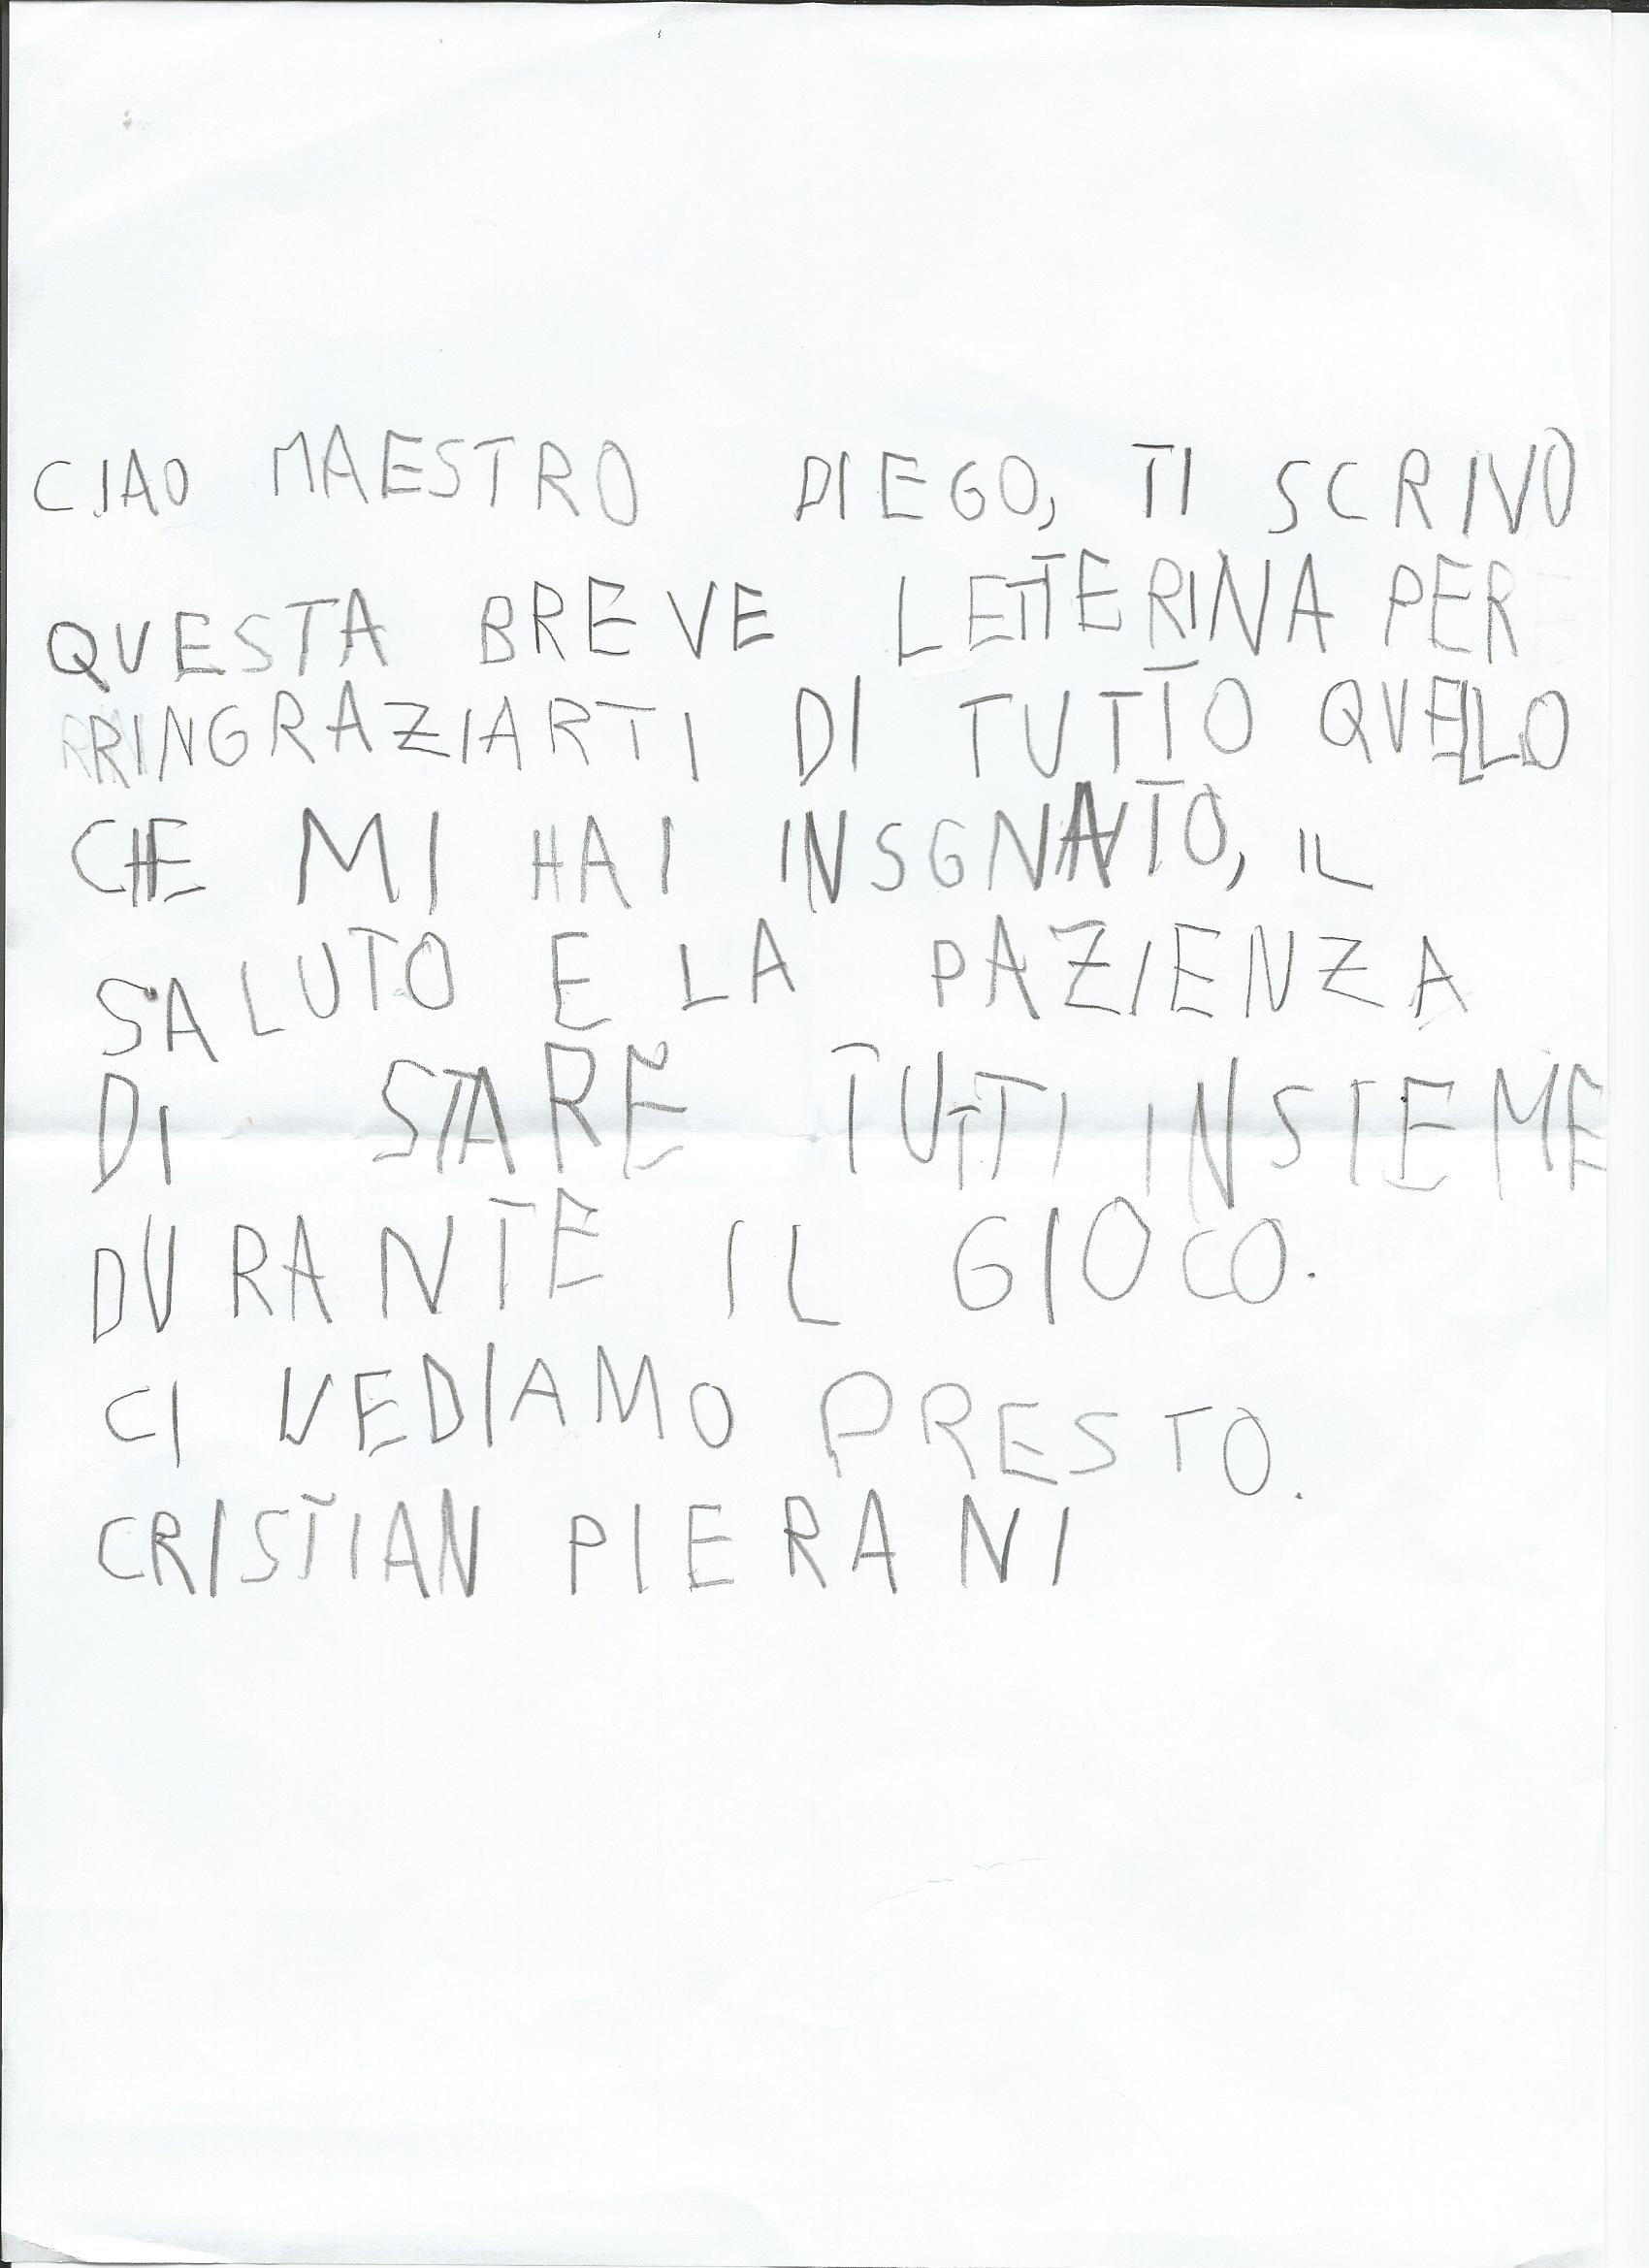 CIAO MAESTRO DIEGO, TI SCRIVO
QUESTA BREVE LETTERINA PER
RINGRAZIARTI DI TUTTO QUELLO
CHE MI HAI INSGNATO, IL
SALUTO E LA PAZIENZA
DI STARE TUTTI INSIEME
DURANTE IL GIOCO.
CI VEDIAMO PRESTO.
CRISTIAN PIERANI